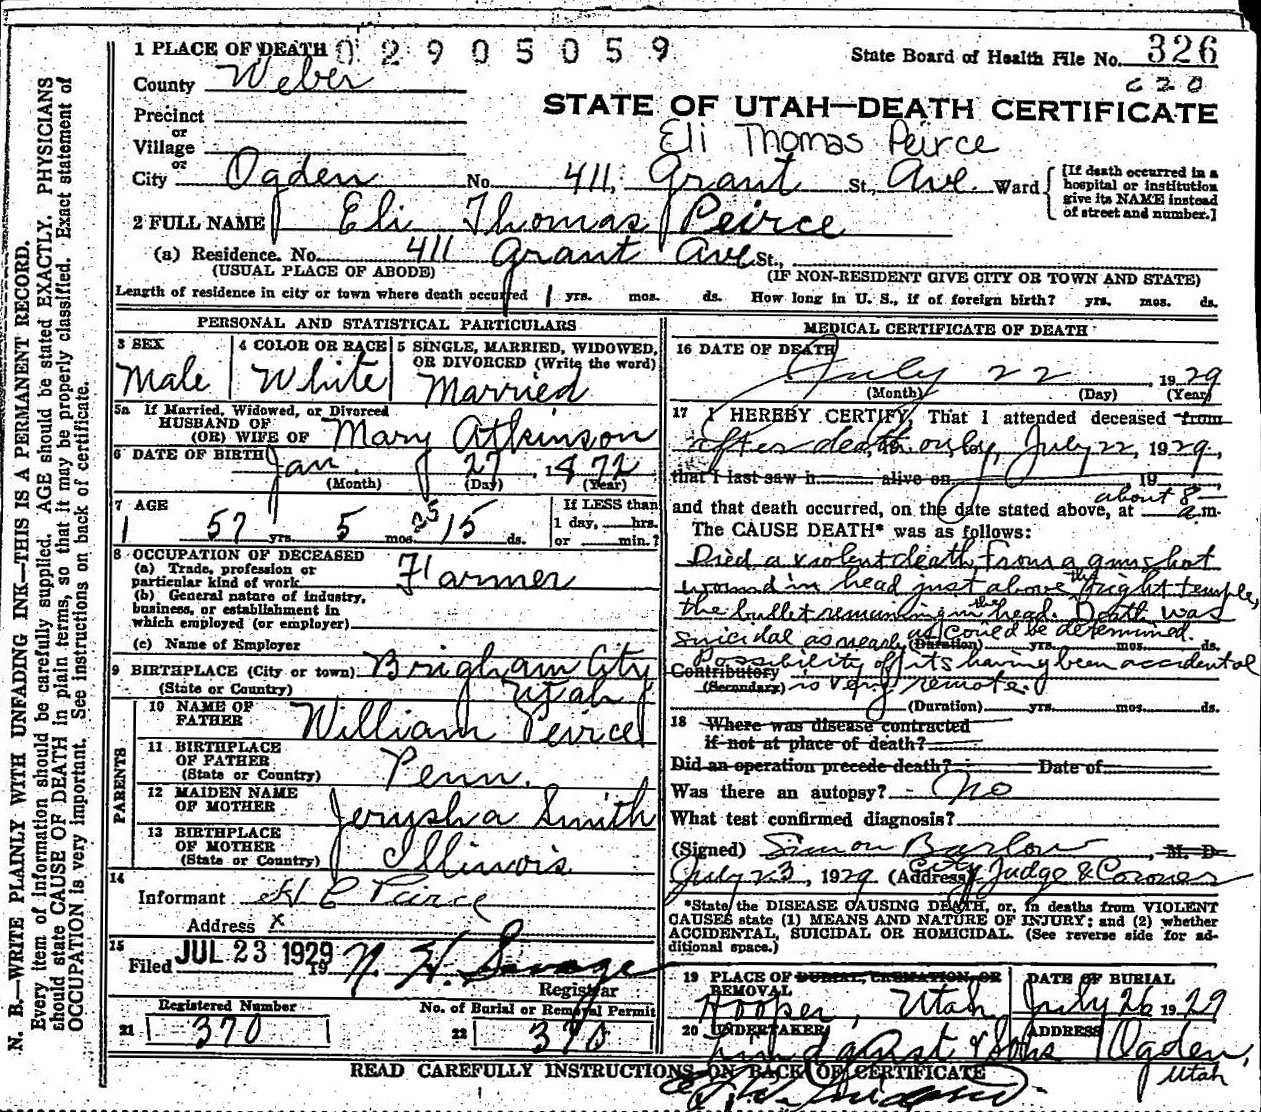 1 PLACE OF DEATH 02905059
State Board of Health File No. 326
County Weber
620
STATE OF UTAH—DEATH CERTIFICATE
Precinct
or
Village
Eli Thomas Peirce
or
City Ogden No. 411, Grant St., Ave. Ward
[If death occurred in a hospital or institution give its NAME instead of street and number.]
2 FULL NAME Eli Thomas Peirce
(a) Residence. No. 411 Grant Ave St.,
(USUAL PLACE OF ABODE) (IF NON-RESIDENT GIVE CITY OR TOWN AND STATE)
Length of residence in city or town where death occurred 1 yrs. mos. ds. How long in U. S., if of foreign birth? yrs. mos. ds.
PERSONAL AND STATISTICAL PARTICULARS
3 SEX Male
4 COLOR OR RACE White
5 SINGLE, MARRIED, WIDOWED, OR DIVORCED (Write the word) Married
5a If Married, Widowed, or Divorced
HUSBAND OF
(OR) WIFE OF Mary Atkinson
6 DATE OF BIRTH Jan. 27, 1872
(Month) (Day) (Year)
7 AGE 57 yrs. 5 mos. 25 15 ds.
If LESS than 1 day, hrs. or min.?
8 OCCUPATION OF DECEASED
(a) Trade, profession or particular kind of work Farmer
(b) General nature of industry, business, or establishment in which employed (or employer)
(c) Name of Employer
9 BIRTHPLACE (City or town) Brigham City
(State or Country) Utah
PARENTS
10 NAME OF FATHER William Peirce
11 BIRTHPLACE OF FATHER (State or Country) Penn.
12 MAIDEN NAME OF MOTHER Jerusha Smith
13 BIRTHPLACE OF MOTHER (State or Country) Illinois
14
Informant H E Peirce
Address x
15
Filed JUL 23 1929 19 N. H. Savage
Registrar
Registered Number No. of Burial or Removal Permit
21 370 22 370
MEDICAL CERTIFICATE OF DEATH
16 DATE OF DEATH
July 22, 1929
(Month) (Day) (Year)
17 I HEREBY CERTIFY, That I attended deceased from
after death only, July 22, 1929,
that I last saw h alive on 19
and that death occurred, on the date stated above, at about 8 a.m.
The CAUSE DEATH* was as follows:
Died a violent death from a gunshot
wound in head just above the right temple,
the bullet remaining in the head. Death was
suicidal as nearly as could be determined.
(Duration) yrs. mos. ds.
Possibility of its having been accidental
Contributory
(Secondary) is very remote.
(Duration) yrs. mos. ds.
18 Where was disease contracted
if not at place of death?
Did an operation precede death? Date of
Was there an autopsy? No
What test confirmed diagnosis?
(Signed) Simon Barlow, M. D.
July 23, 1929 (Address) City Judge & Coroner
*State the DISEASE CAUSING DEATH, or, in deaths from VIOLENT
CAUSES state (1) MEANS AND NATURE OF INJURY; and (2) whether
ACCIDENTAL, SUICIDAL OR HOMICIDAL. (See reverse side for additional space.)
19 PLACE OF BURIAL, CREMATION, OR REMOVAL Hooper, Utah
DATE OF BURIAL July 26 1929
20 UNDERTAKER Lindquist & Sons
ADDRESS Ogden, Utah
READ CAREFULLY INSTRUCTIONS ON BACK OF CERTIFICATE
N. B.—WRITE PLAINLY WITH UNFADING INK—THIS IS A PERMANENT RECORD.
Every item of information should be carefully supplied. AGE should be stated EXACTLY. PHYSICIANS
should state CAUSE OF DEATH in plain terms, so that it may be properly classified. Exact statement of
OCCUPATION is very important. See instructions on back of certificate.